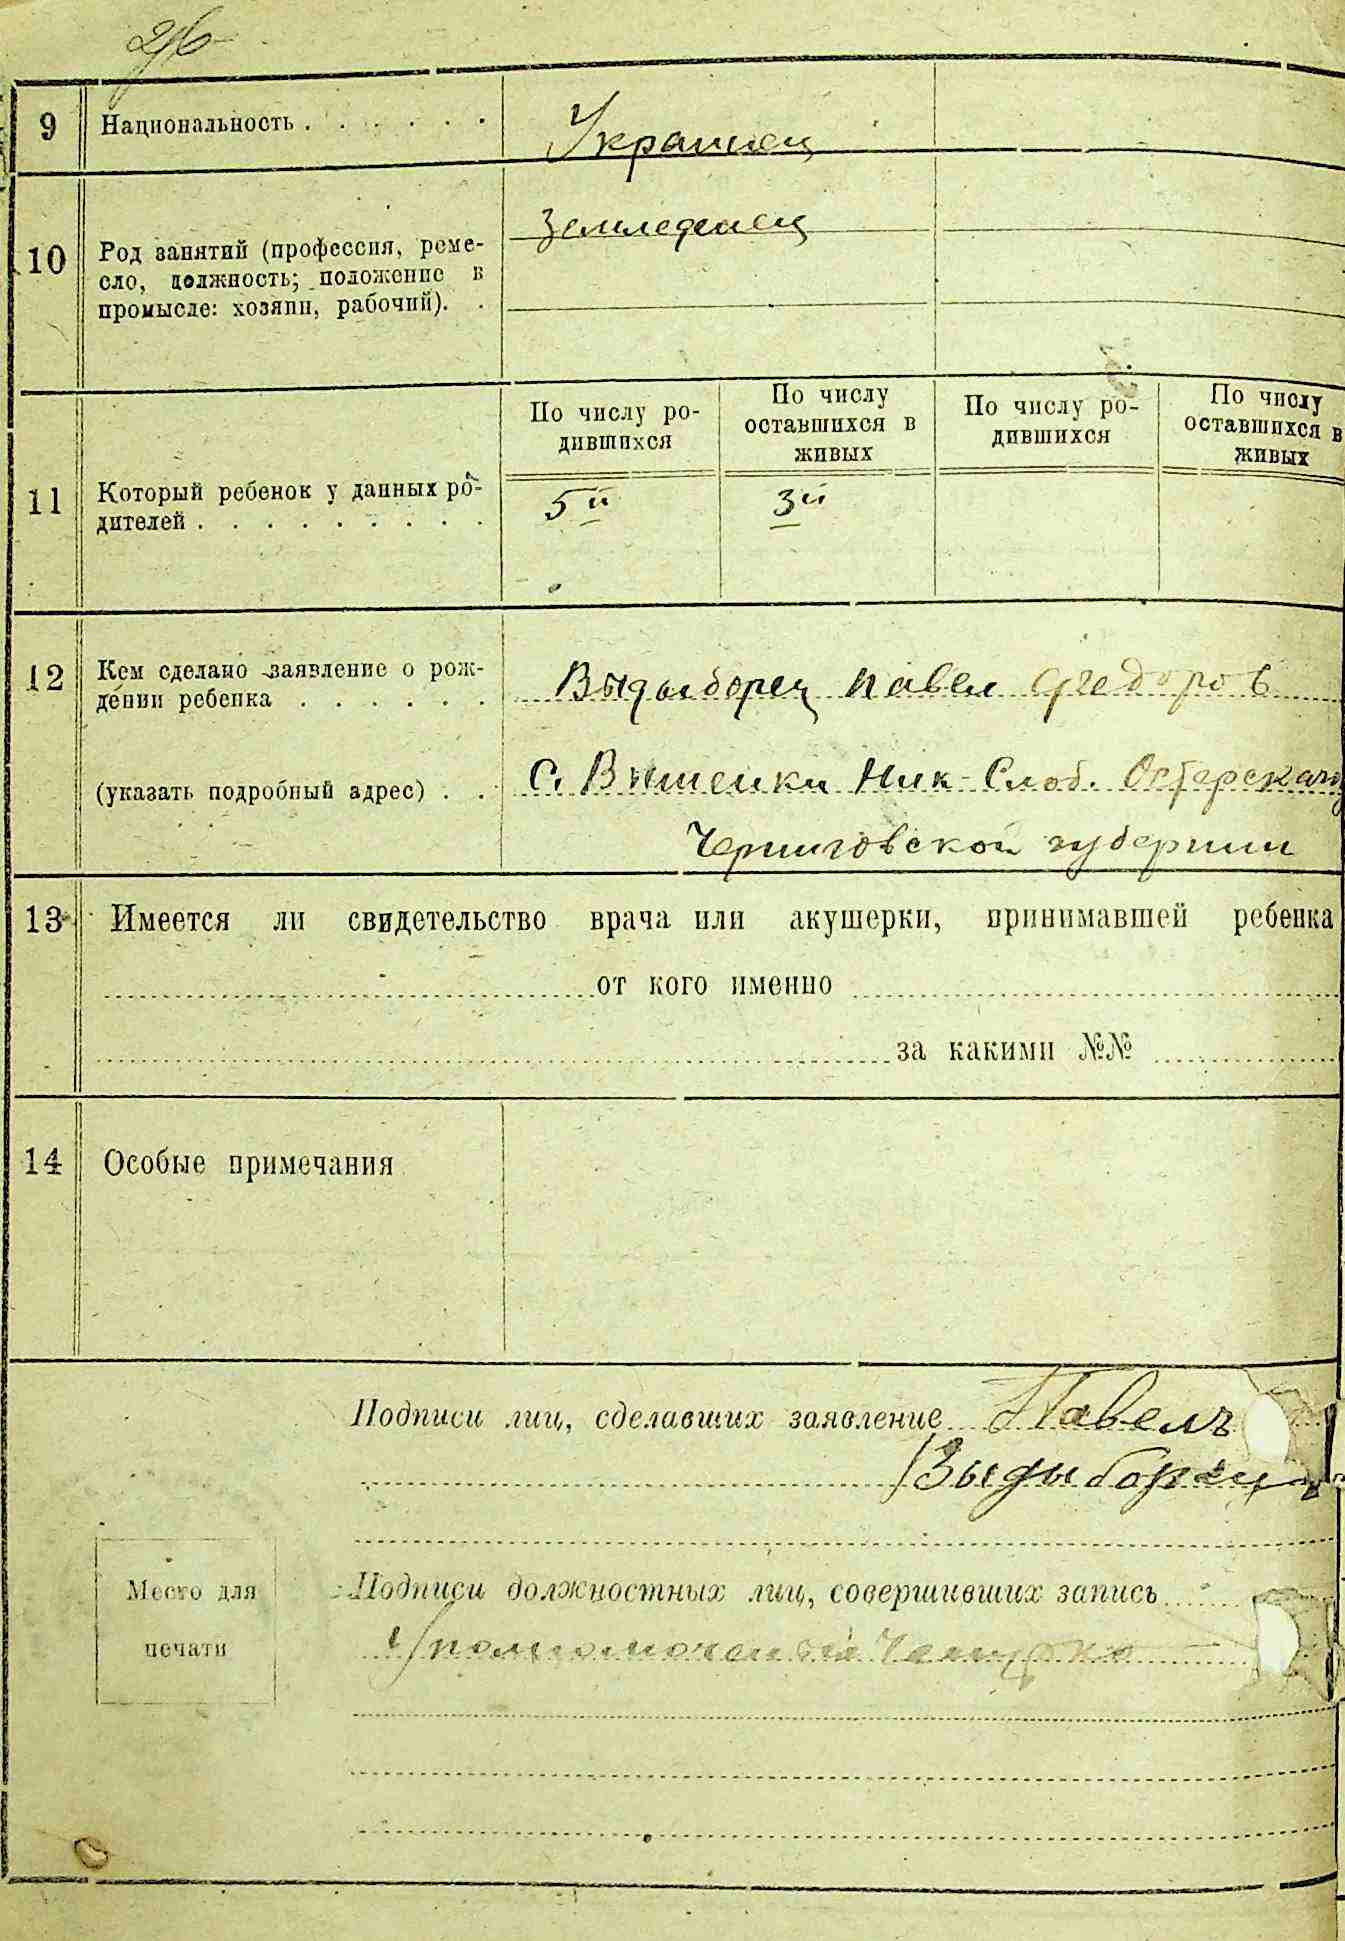 9 Национальность . . . . . . Украинец
10 Род занятий (профессия, реме-
сло, должность; положение в
промысле: хозяин, рабочий). .
Земледелец
По числу ро-
дившихся
По числу
оставшихся в
живых
По числу ро-
дившихся
По числу
оставшихся в
живых
11 Который ребенок у данных ро-
дителей . . . . . . . . .
5й 3й
12 Кем сделано заявление о рож-
дении ребенка . . . . . .
Выдыборец Павел Федоров
(указать подробный адрес) . .
С. Вишенки Ник-Слоб. Остерского
Черниговской губернии
13 Имеется ли свидетельство врача или акушерки, принимавшей ребенка
от кого именно
за какими №№
14 Особые примечания
Подписи лиц, сделавших заявление Павелъ
Выдыборец
Место для
печати
Подписи должностных лиц, совершивших запись